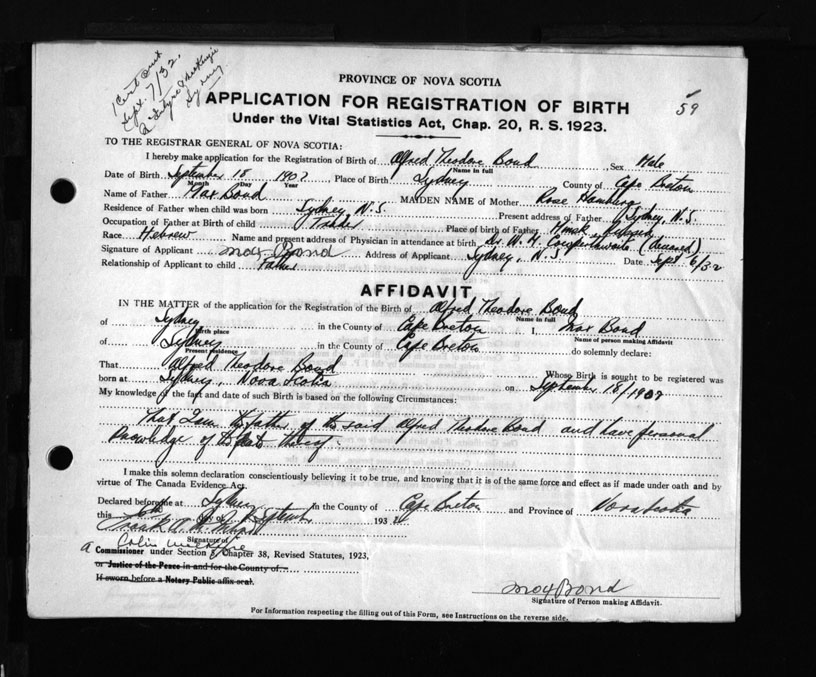 Sept. 7/32.
Sydney
59
PROVINCE OF NOVA SCOTIA
APPLICATION FOR REGISTRATION OF BIRTH
Under the Vital Statistics Act, Chap. 20, R. S. 1923.
TO THE REGISTRAR GENERAL OF NOVA SCOTIA:
I hereby make application for the Registration of Birth of Alfred Theodore Bond Sex Male
Name in full
Date of Birth September 18 1907 Place of Birth Sydney County of Cape Breton
Month Day Year
Name of Father Max Bond MAIDEN NAME of Mother Rose
Residence of Father when child was born Sydney, N.S. Present address of Father Sydney, N.S.
Occupation of Father at Birth of child Trader Place of birth of Father
Race Hebrew Name and present address of Physician in attendance at birth Dr. W. (deceased)
Signature of Applicant Max Bond Address of Applicant Sydney, N.S. Date Sept 6/32
Relationship of Applicant to child Father
AFFIDAVIT
IN THE MATTER of the application for the Registration of the Birth of Alfred Theodore Bond
Name in full
of Sydney in the County of Cape Breton I, Max Bond
Birth place Name of person making Affidavit
of Sydney in the County of Cape Breton do solemnly declare:
Present residence
That Alfred Theodore Bond Whose Birth is sought to be registered was
born at Sydney, Nova Scotia on September 18/1907
My knowledge of the fact and date of such Birth is based on the following Circumstances:
That I am the father of the said Alfred Theodore Bond and have personal
knowledge of the facts thereof.
I make this solemn declaration conscientiously believing it to be true, and knowing that it is of the same force and effect as if made under oath and by
virtue of The Canada Evidence Act.
Declared before me at Sydney in the County of Cape Breton and Province of Nova Scotia
this day of September 1932
Signature of
A Commissioner under Section Chapter 38, Revised Statutes, 1923,
or Justice of the Peace in and for the County of
If sworn before a Notary Public affix seal.
Max Bond
Signature of Person making Affidavit.
For Information respecting the filling out of this Form, see Instructions on the reverse side.